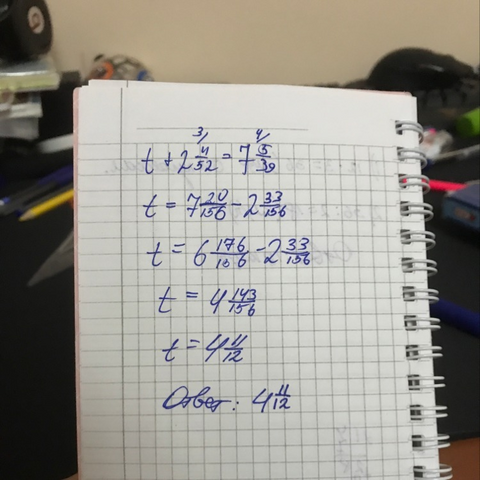 3, 4,
t + 2 11/52 = 7 5/39
t = 7 20/156 - 2 33/156
t = 6 176/156 - 2 33/156
t = 4 143/156
t = 4 11/12
Ответ: 4 11/12